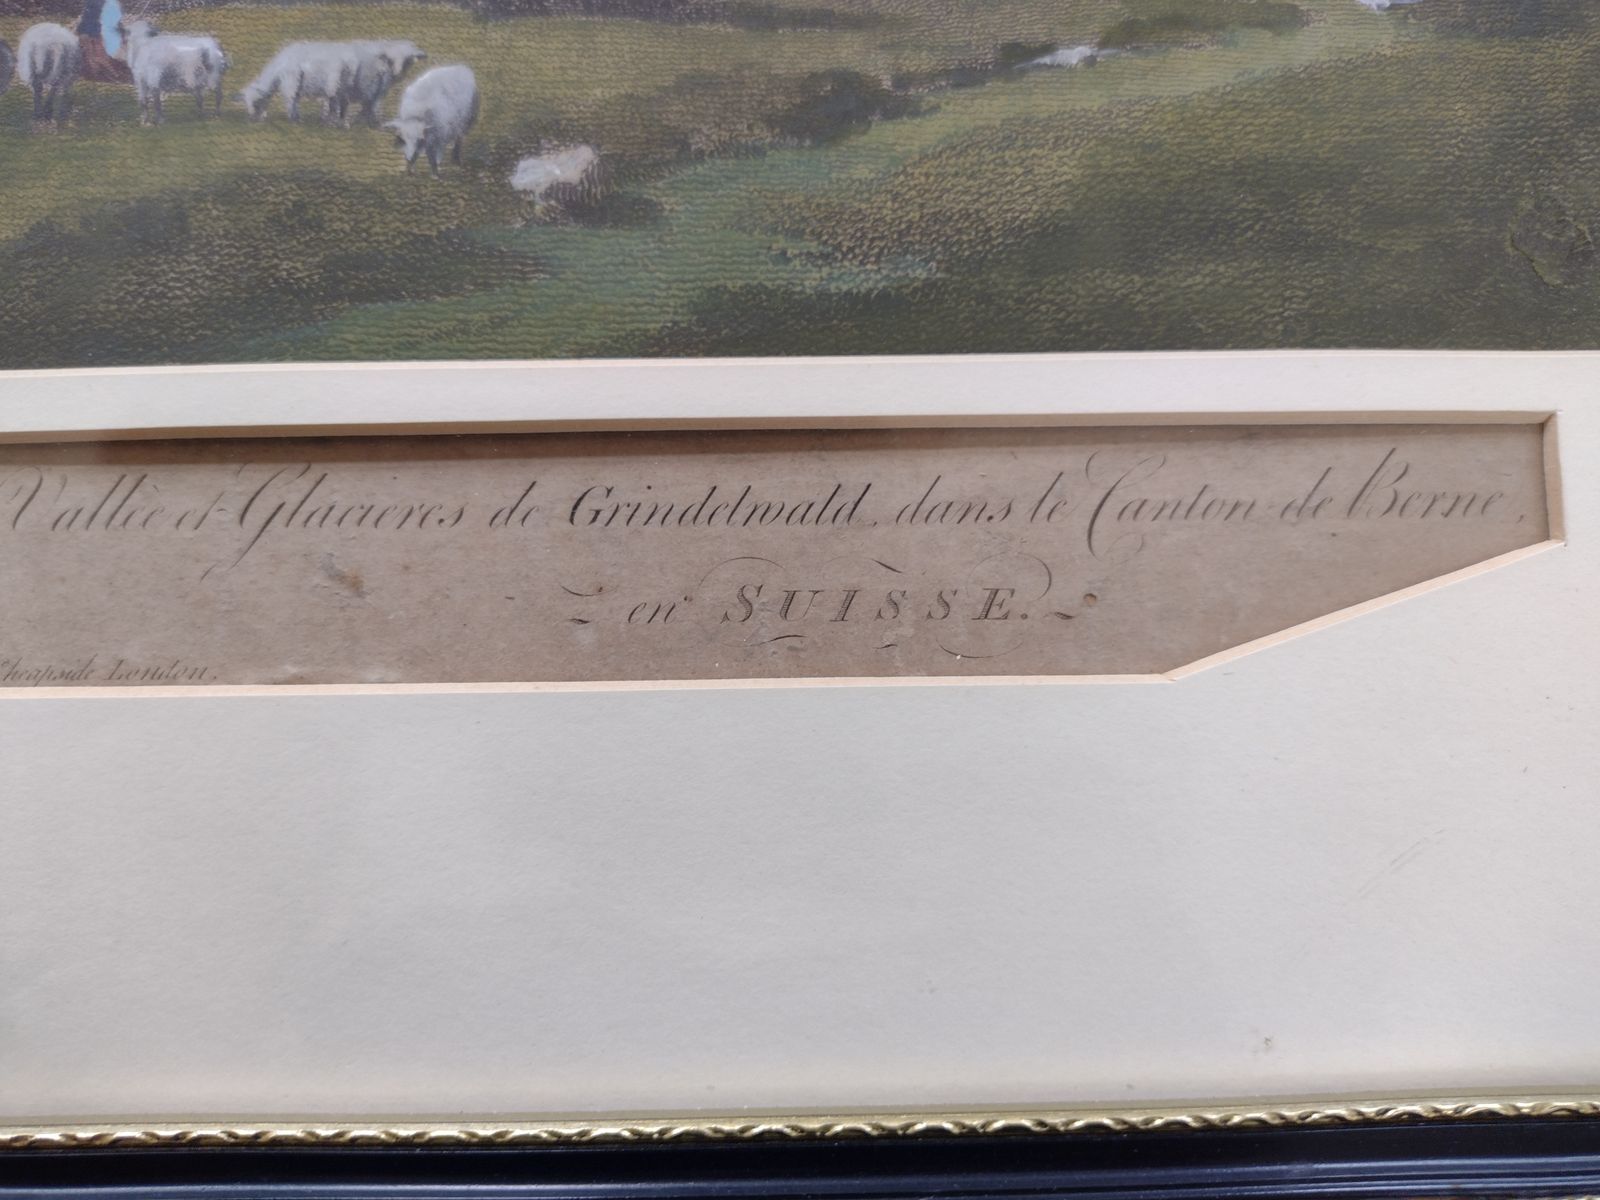 Vallèe et Glacieres de Grindelwald, dans le Canton de Berne,
en SUISSE.
Cheapside London.